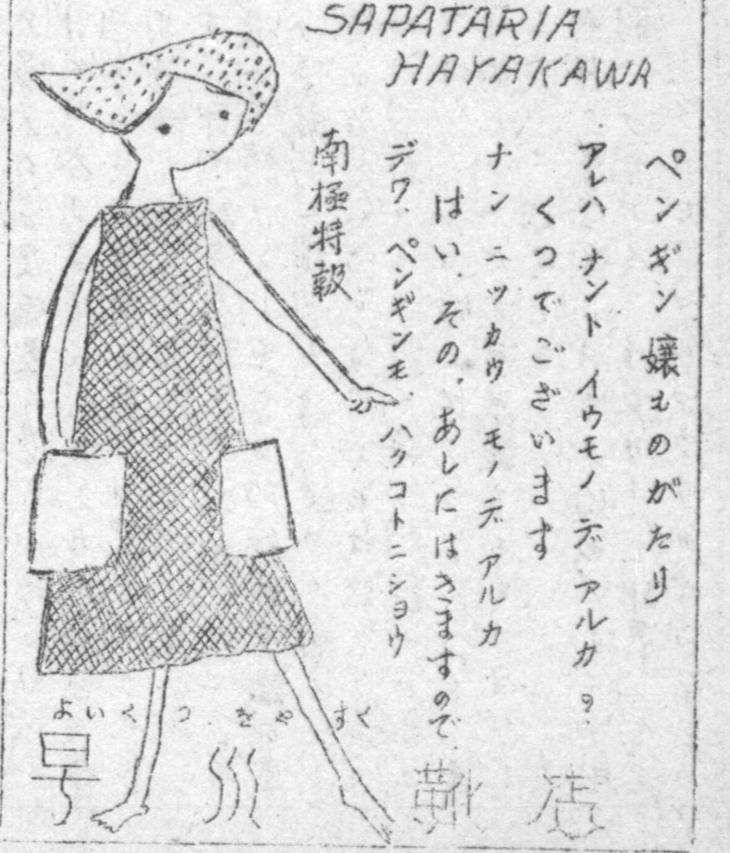 SAPATARIA
HAYAKAWA
ペンギン嬢ものがたり
アレハ ナント イウモノ デ アルカ?
くつでございます
ナン ニ ツカウ モノ デ アルカ
はい、その、あしにはきますので、
デワ、ペンギンモ、ハクコトニショウ
南極特報
よいくつ
すく
早川靴店